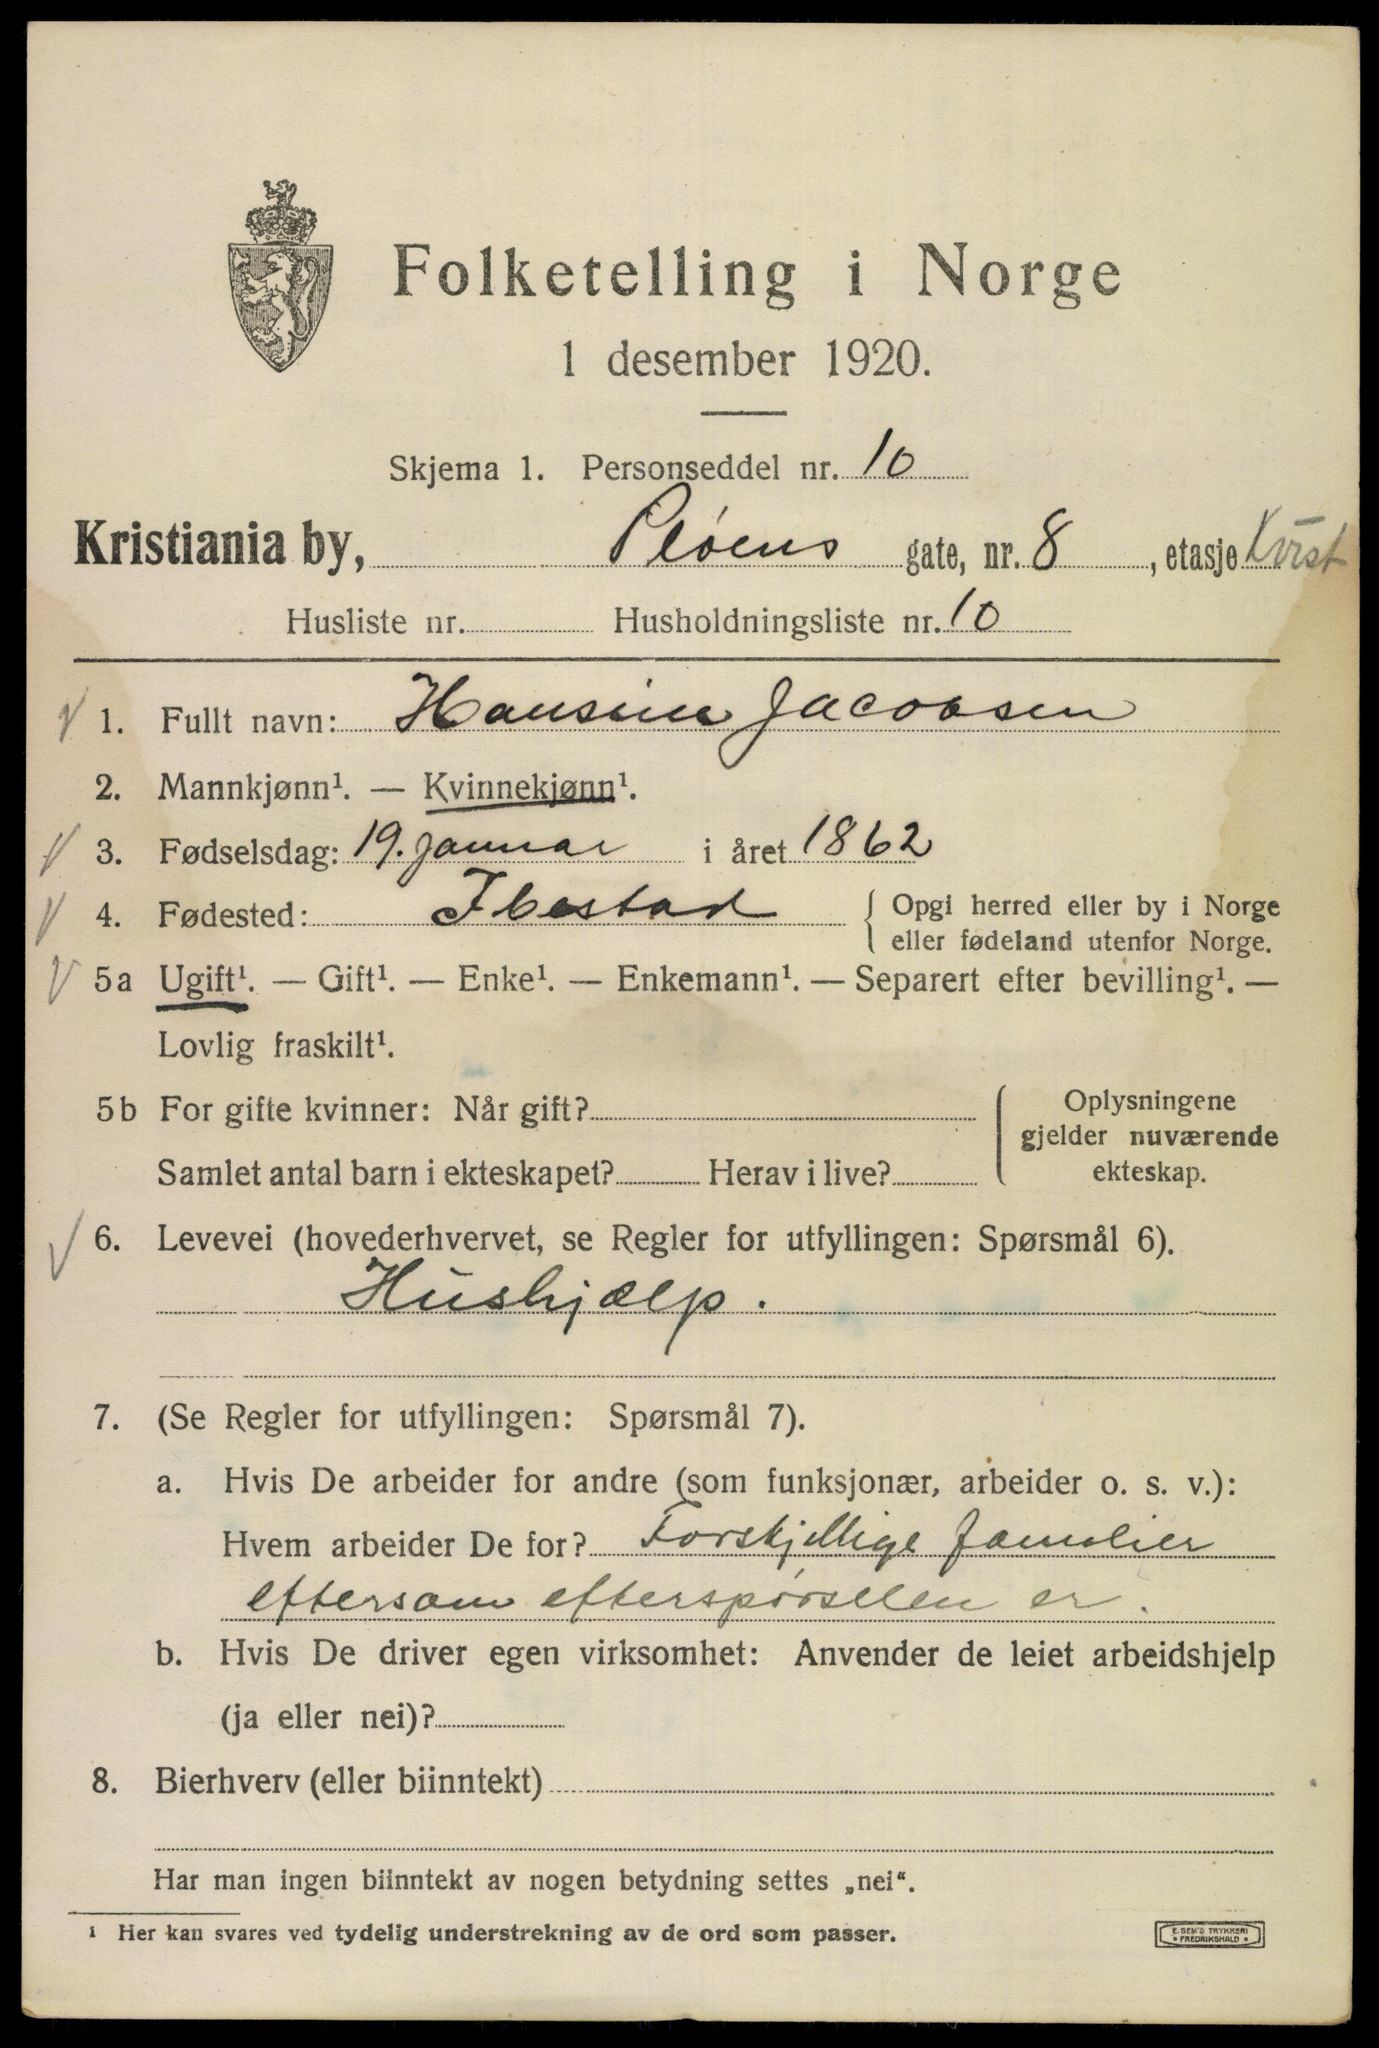 Folketelling i Norge
1 desember 1920.
Skjema 1. Personseddel nr. 10
Kristiania by, Pløens gate, nr. 8, etasje Kvist
Husliste nr. Husholdningsliste nr. 10
1. Fullt navn: Hansine Jacobsen
2. Mannkjønn¹. — Kvinnekjønn¹.
3. Fødselsdag: 19. januar i året 1862
4. Fødested: Ibestad { Opgi herred eller by i Norge
eller fødeland utenfor Norge.
5a Ugift¹. — Gift¹. — Enke¹. — Enkemann¹. — Separert efter bevilling¹. —
Lovlig fraskilt¹.
5b For gifte kvinner: Når gift? { Oplysningene
gjelder nuværende
Samlet antal barn i ekteskapet? Herav i live? ekteskap.
6. Levevei (hovederhvervet, se Regler for utfyllingen: Spørsmål 6).
Hushjælp.
7. (Se Regler for utfyllingen: Spørsmål 7).
a. Hvis De arbeider for andre (som funksjonær, arbeider o. s. v.):
Hvem arbeider De for? Forskjellige familier
eftersom efterspørselen er.
b. Hvis De driver egen virksomhet: Anvender de leiet arbeidshjelp
(ja eller nei)?
8. Bierhverv (eller biinntekt)
Har man ingen biinntekt av nogen betydning settes „nei“.
¹ Her kan svares ved tydelig understrekning av de ord som passer.
E. SEM'S TRYKKERI
• FREDRIKSHALD •